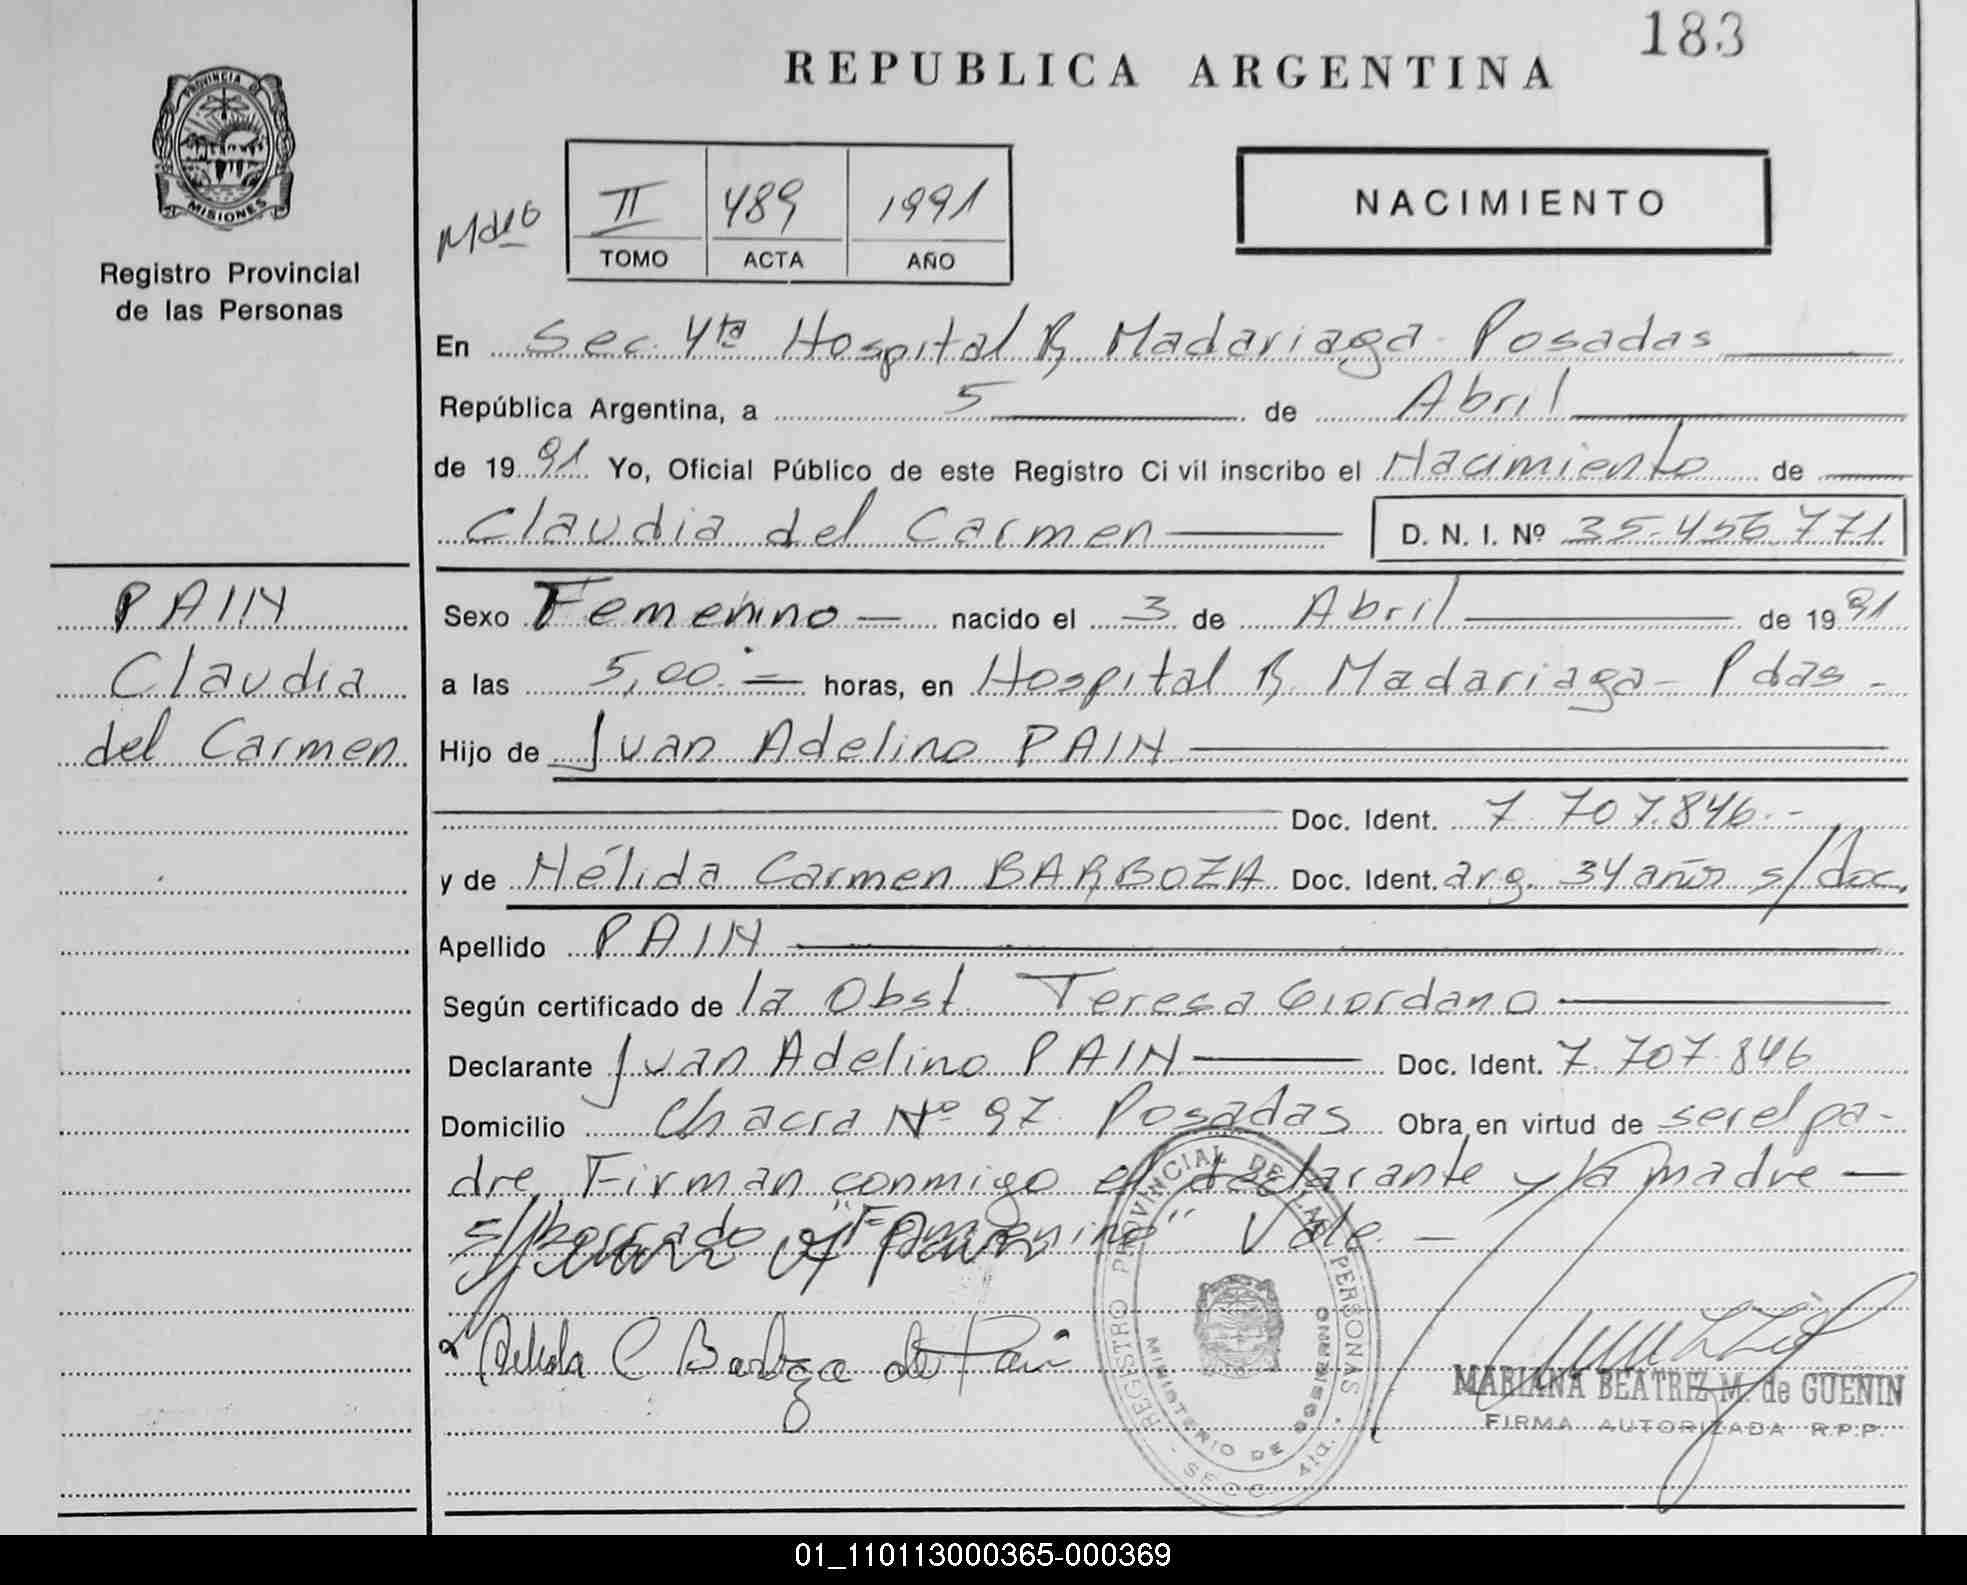 183
REPUBLICA ARGENTINA
PROVINCIA DE
MISIONES
Registro Provincial
de las Personas
II 489 1991
TOMO ACTA AÑO
NACIMIENTO
En Sec. 4ta Hospital R. Madariaga - Posadas
República Argentina, a 5 de Abril
de 1991 Yo, Oficial Público de este Registro Civil inscribo el Nacimiento de
Claudia del Carmen D. N. I. Nº 35.456.771
PAIN
Claudia
del Carmen
Sexo Femenino nacido el 3 de Abril de 1991
a las 5,00.- horas, en Hospital R. Madariaga - Pdas -
Hijo de Juan Adelino PAIN
Doc. Ident. 7.707.846.-
y de Nélida Carmen BARBOZA Doc. Ident. arg. 34 años s/doc.
Apellido PAIN
Según certificado de la Obst. Teresa Giordano
Declarante Juan Adelino PAIN Doc. Ident. 7.707.846
Domicilio Chacra Nº 97. Posadas Obra en virtud de ser el pa-
dre. Firman conmigo el declarante y la madre —
s/borrado "Femenino" Vale. —
Juan A Pain
Nelida C Barboza de Pain
REGISTRO PROVINCIAL DE LAS PERSONAS
MINISTERIO DE GOBIERNO
SECC. 4ta.
MARIANA BEATRIZ M. de GUENIN
FIRMA AUTORIZADA R.P.P.
01_110113000365-000369